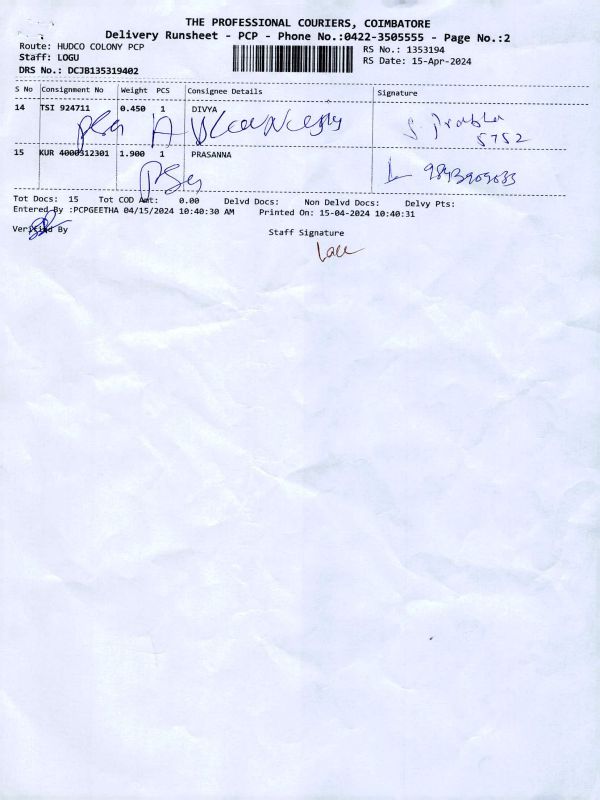 THE PROFESSIONAL COURIERS, COIMBATORE
Delivery Runsheet - PCP - Phone No.:0422-3505555 - Page No.:2
Route: HUDCO COLONY PCP
Staff: LOGU
DRS No.: DCJB135319402
RS No.: 1353194
RS Date: 15-Apr-2024
S No Consignment No Weight PCS Consignee Details Signature
14 TSI 924711 0.450 1 DIVYA
S. Prabha
5752
15 KUR 4000312301 1.900 1 PRASANNA
9843909033
Tot Docs: 15 Tot COD Amt: 0.00 Delvd Docs: Non Delvd Docs: Delvy Pts:
Entered By :PCPGEETHA 04/15/2024 10:40:30 AM Printed On: 15-04-2024 10:40:31
Verified By Staff Signature